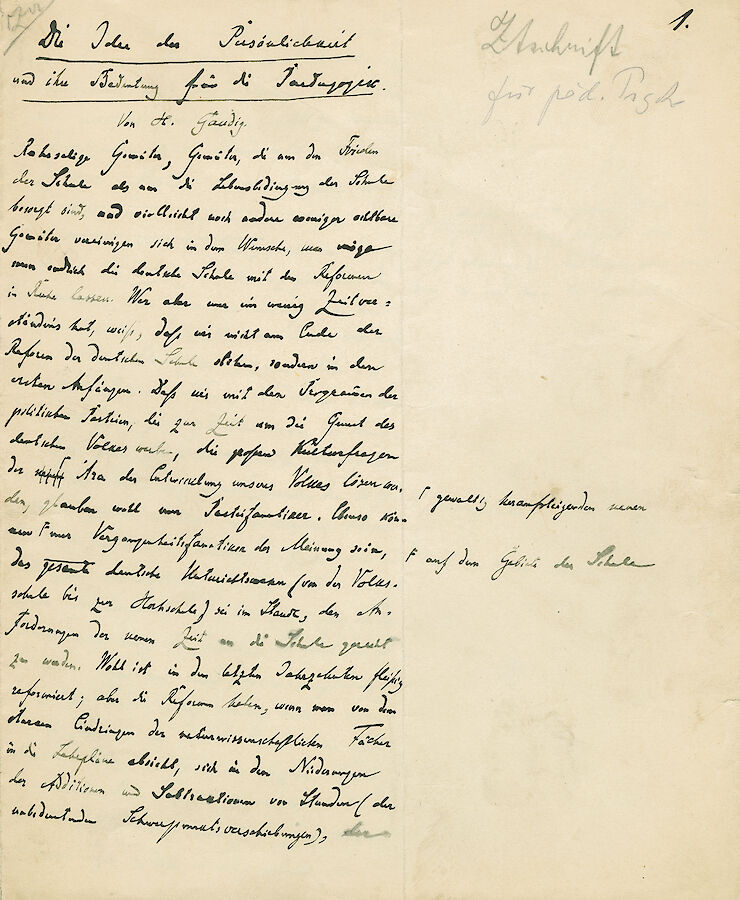 1.
Ztschrift
für päd. Psych
Die Idee der Persönlichkeit
und ihre Bedeutung für die Paedagogik.
Von H. Gaudig.
Ruheselige Gemüter, Gemüter, die um den Frieden
der Schule als um die Lebensbedingung der Schule
besorgt sind, und vielleicht noch andere weniger achtbare
Gemüter vereinigen sich in dem Wunsche, man möge
nun endlich die deutsche Schule mit den Reformen
in Ruhe lassen. Wer aber nur ein wenig Zeitver-
ständnis hat, weiß, daß wir nicht am Ende der
Reform der deutschen Schule stehen, sondern in den
ersten Anfängen. Daß wir mit den Programmen der
politischen Parteien, die zur Zeit um die Gunst des
deutschen Volkes werben, die großen Kulturfragen
der Ära der Entwicklung unseres Volkes lösen wer-
den, glauben wohl nur Parteifanatiker. Ebenso kön-
nen nur Vergangenheitsfanatiker der Meinung sein,
das gesamte deutsche Unterrichtswesen (von der Volks-
schule bis zur Hochschule) sei im Stande, den An-
forderungen der neuen Zeit an die Schule gerecht
zu werden. Wohl ist in den letzten Jahrzehnten fleißig
reformiert; aber die Reformen haben, wenn man von dem
starken Eindringen der naturwissenschaftlichen Fächer
in die Lehrpläne absieht, sich in den Niederungen
der Additionen und Subtractionen von Stunden (der
unbedeutenden Schwerpunktsverschiebungen),
gewaltig heraufsteigenden neuen
auf dem Gebiete der Schule